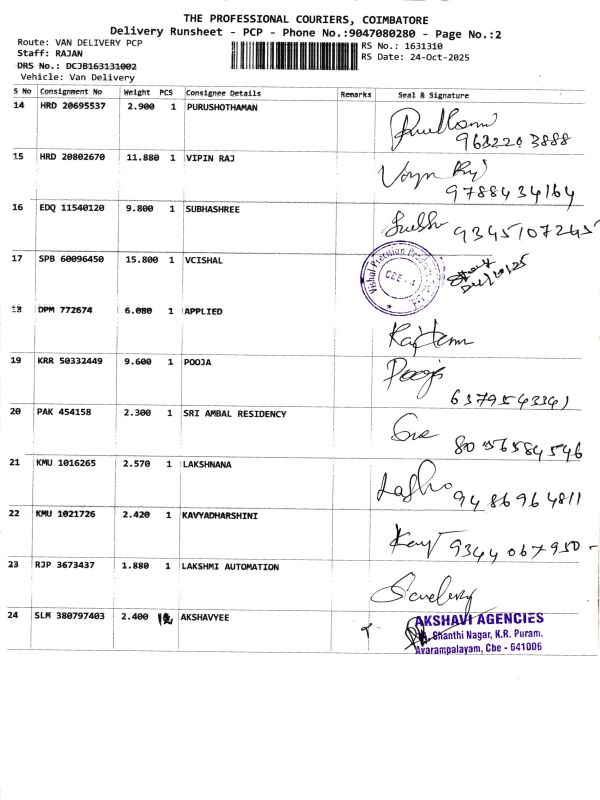 THE PROFESSIONAL COURIERS, COIMBATORE
Delivery Runsheet - PCP - Phone No.:9047080280 - Page No.:2
Route: VAN DELIVERY PCP
RS No.: 1631310
Staff: RAJAN
RS Date: 24-Oct-2025
DRS No.: DCJB163131002
Vehicle: Van Delivery
S No Consignment No Weight PCS Consignee Details Remarks Seal & Signature
14 HRD 20695537 2.900 1 PURUSHOTHAMAN
9632203888
15 HRD 20802670 11.880 1 VIPIN RAJ
9788434164
16 EDQ 11540120 9.800 1 SUBHASHREE
9345107245
17 SPB 60096450 15.800 1 VCISHAL
18 DPM 772674 6.080 1 APPLIED
19 KRR 50332449 9.600 1 POOJA
Pooja
6379543341
20 PAK 454158 2.300 1 SRI AMBAL RESIDENCY
8056584546
21 KMU 1016265 2.570 1 LAKSHNANA
9486964811
22 KMU 1021726 2.420 1 KAVYADHARSHINI
9344067950
23 RJP 3673437 1.880 1 LAKSHMI AUTOMATION
24 SLM 380797403 2.400 AKSHAVYEE
AKSHAVI AGENCIES
Shanthi Nagar, K.R. Puram,
Avarampalayam, Cbe - 641006